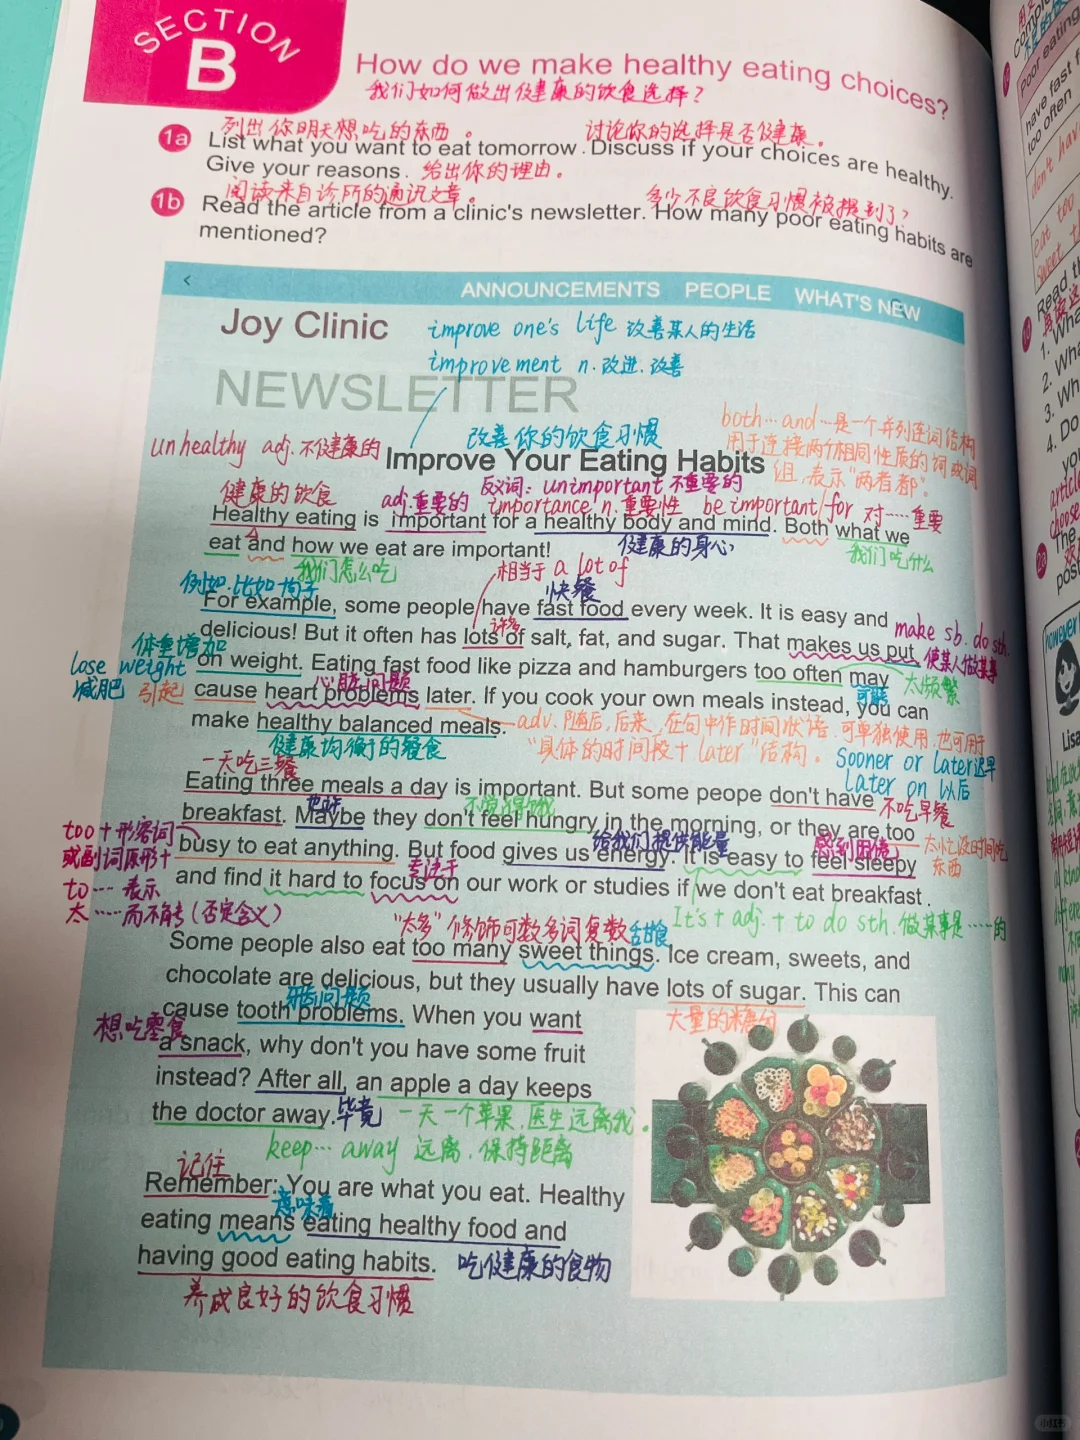 SECTION
B
How do we make healthy eating choices?
我们如何做出健康的饮食选择？
列出你明天想吃的东西。 讨论你的选择是否健康。
1a List what you want to eat tomorrow. Discuss if your choices are healthy.
Give your reasons. 给出你的理由。
阅读来自诊所的通讯文章。 多少不良饮食习惯被提到了？
1b Read the article from a clinic's newsletter. How many poor eating habits are
mentioned?
ANNOUNCEMENTS PEOPLE WHAT'S NEW
Joy Clinic
improve one's life 改善某人的生活
improvement n. 改进.改善
NEWSLETTER
both…and…是一个并列连词结构
用于连接两个相同性质的词或词
组,表示"两者都"。
unhealthy adj. 不健康的
改善你的饮食习惯
Improve Your Eating Habits
健康的饮食
反义词: unimportant 不重要的
adj.重要的 importance n.重要性 be important for 对……重要
Healthy eating is important for a healthy body and mind. Both what we
eat and how we eat are important!
健康的身心
我们吃什么
我们怎么吃
相当于 a lot of
例如.比如+句子
快餐
For example, some people have fast food every week. It is easy and
许多
make sb. do sth.
使某人做某事
delicious! But it often has lots of salt, fat, and sugar. That makes us put
体重增加
lose weight
减肥
on weight. Eating fast food like pizza and hamburgers too often may
太频繁
可能
引起
心脏问题
cause heart problems later. If you cook your own meals instead, you can
make healthy balanced meals.
adv. 随后,后来,在句中作时间状语.可单独使用,也可用于
"具体的时间段+later"结构。
健康均衡的餐食
Sooner or later 迟早
later on 以后
一天吃三餐
Eating three meals a day is important. But some peope don't have
不吃早餐
也许
不觉得饿
breakfast. Maybe they don't feel hungry in the morning, or they are too
太忙没时间吃
东西
too+形容词
或副词原形+
to…表示
太……而不能(否定含义)
给我们提供能量
感到困倦
busy to eat anything. But food gives us energy. It is easy to feel sleepy
专注于
and find it hard to focus on our work or studies if we don't eat breakfast.
It's + adj. + to do sth. 做某事是……的
"太多"修饰可数名词复数
甜食
Some people also eat too many sweet things. Ice cream, sweets, and
chocolate are delicious, but they usually have lots of sugar. This can
大量的糖分
牙齿问题
cause tooth problems. When you want
想吃零食
a snack, why don't you have some fruit
instead? After all, an apple a day keeps
the doctor away.
毕竟 一天一个苹果,医生远离我。
keep… away 远离.保持距离
记住
Remember: You are what you eat. Healthy
意味着
eating means eating healthy food and
having good eating habits.
吃健康的食物
养成良好的饮食习惯
Poor eating
have fast f
too often
don't hav
eat too
sweet t
Read th
1. Wha
2. Wha
3. Wh
4. Do
yo
article
choose
The
post
however
Lisa